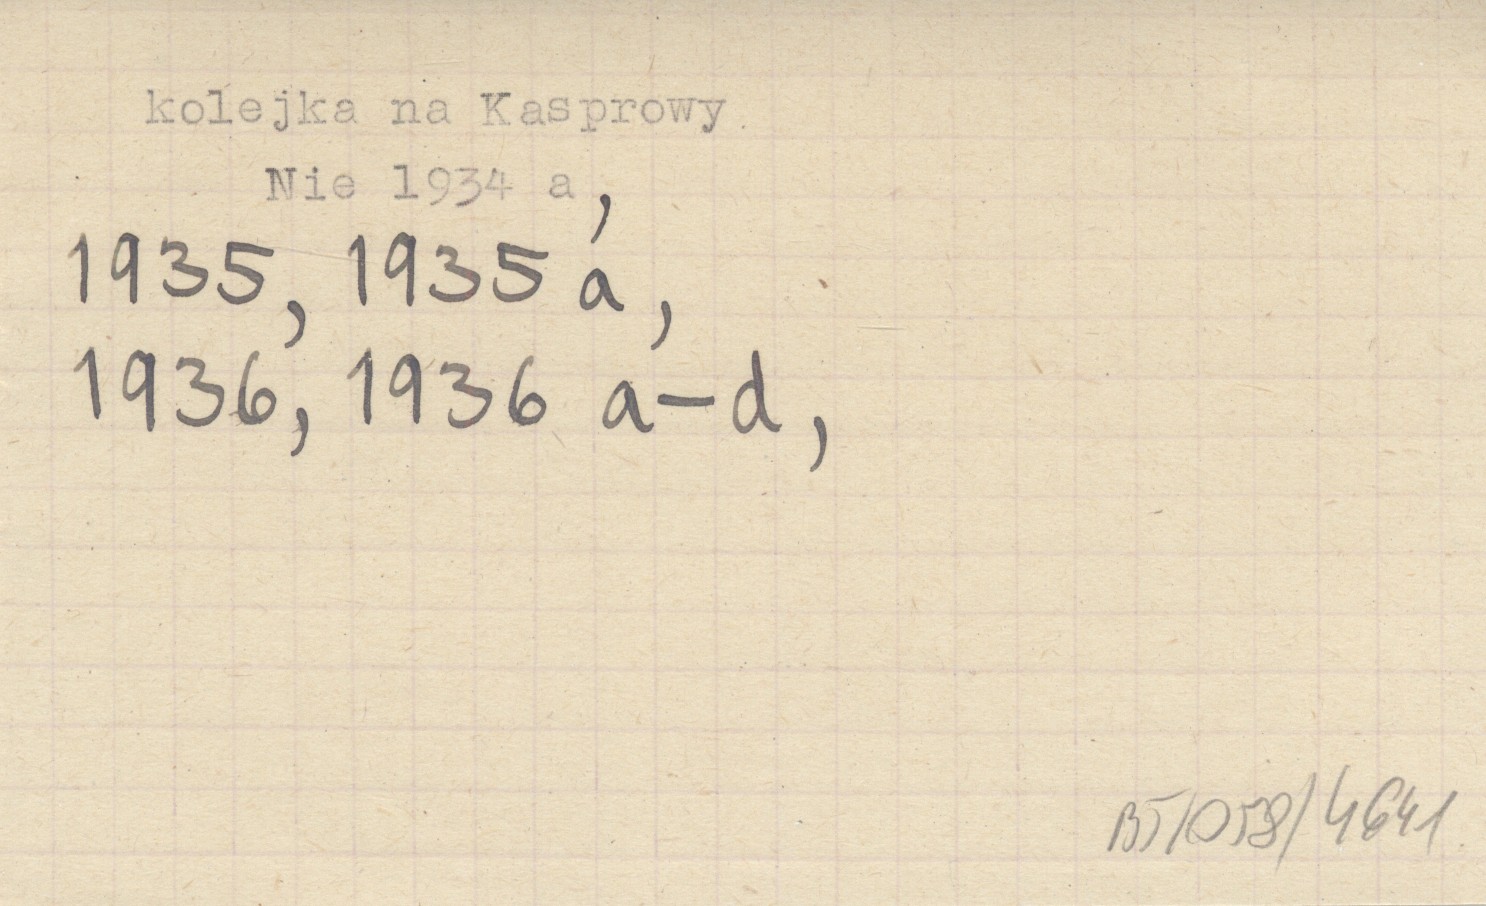 kolejka na Kasprowy
Nie 1934 a,
1935, 1935 a,
1936, 1936 a-d,
BT/058/4641